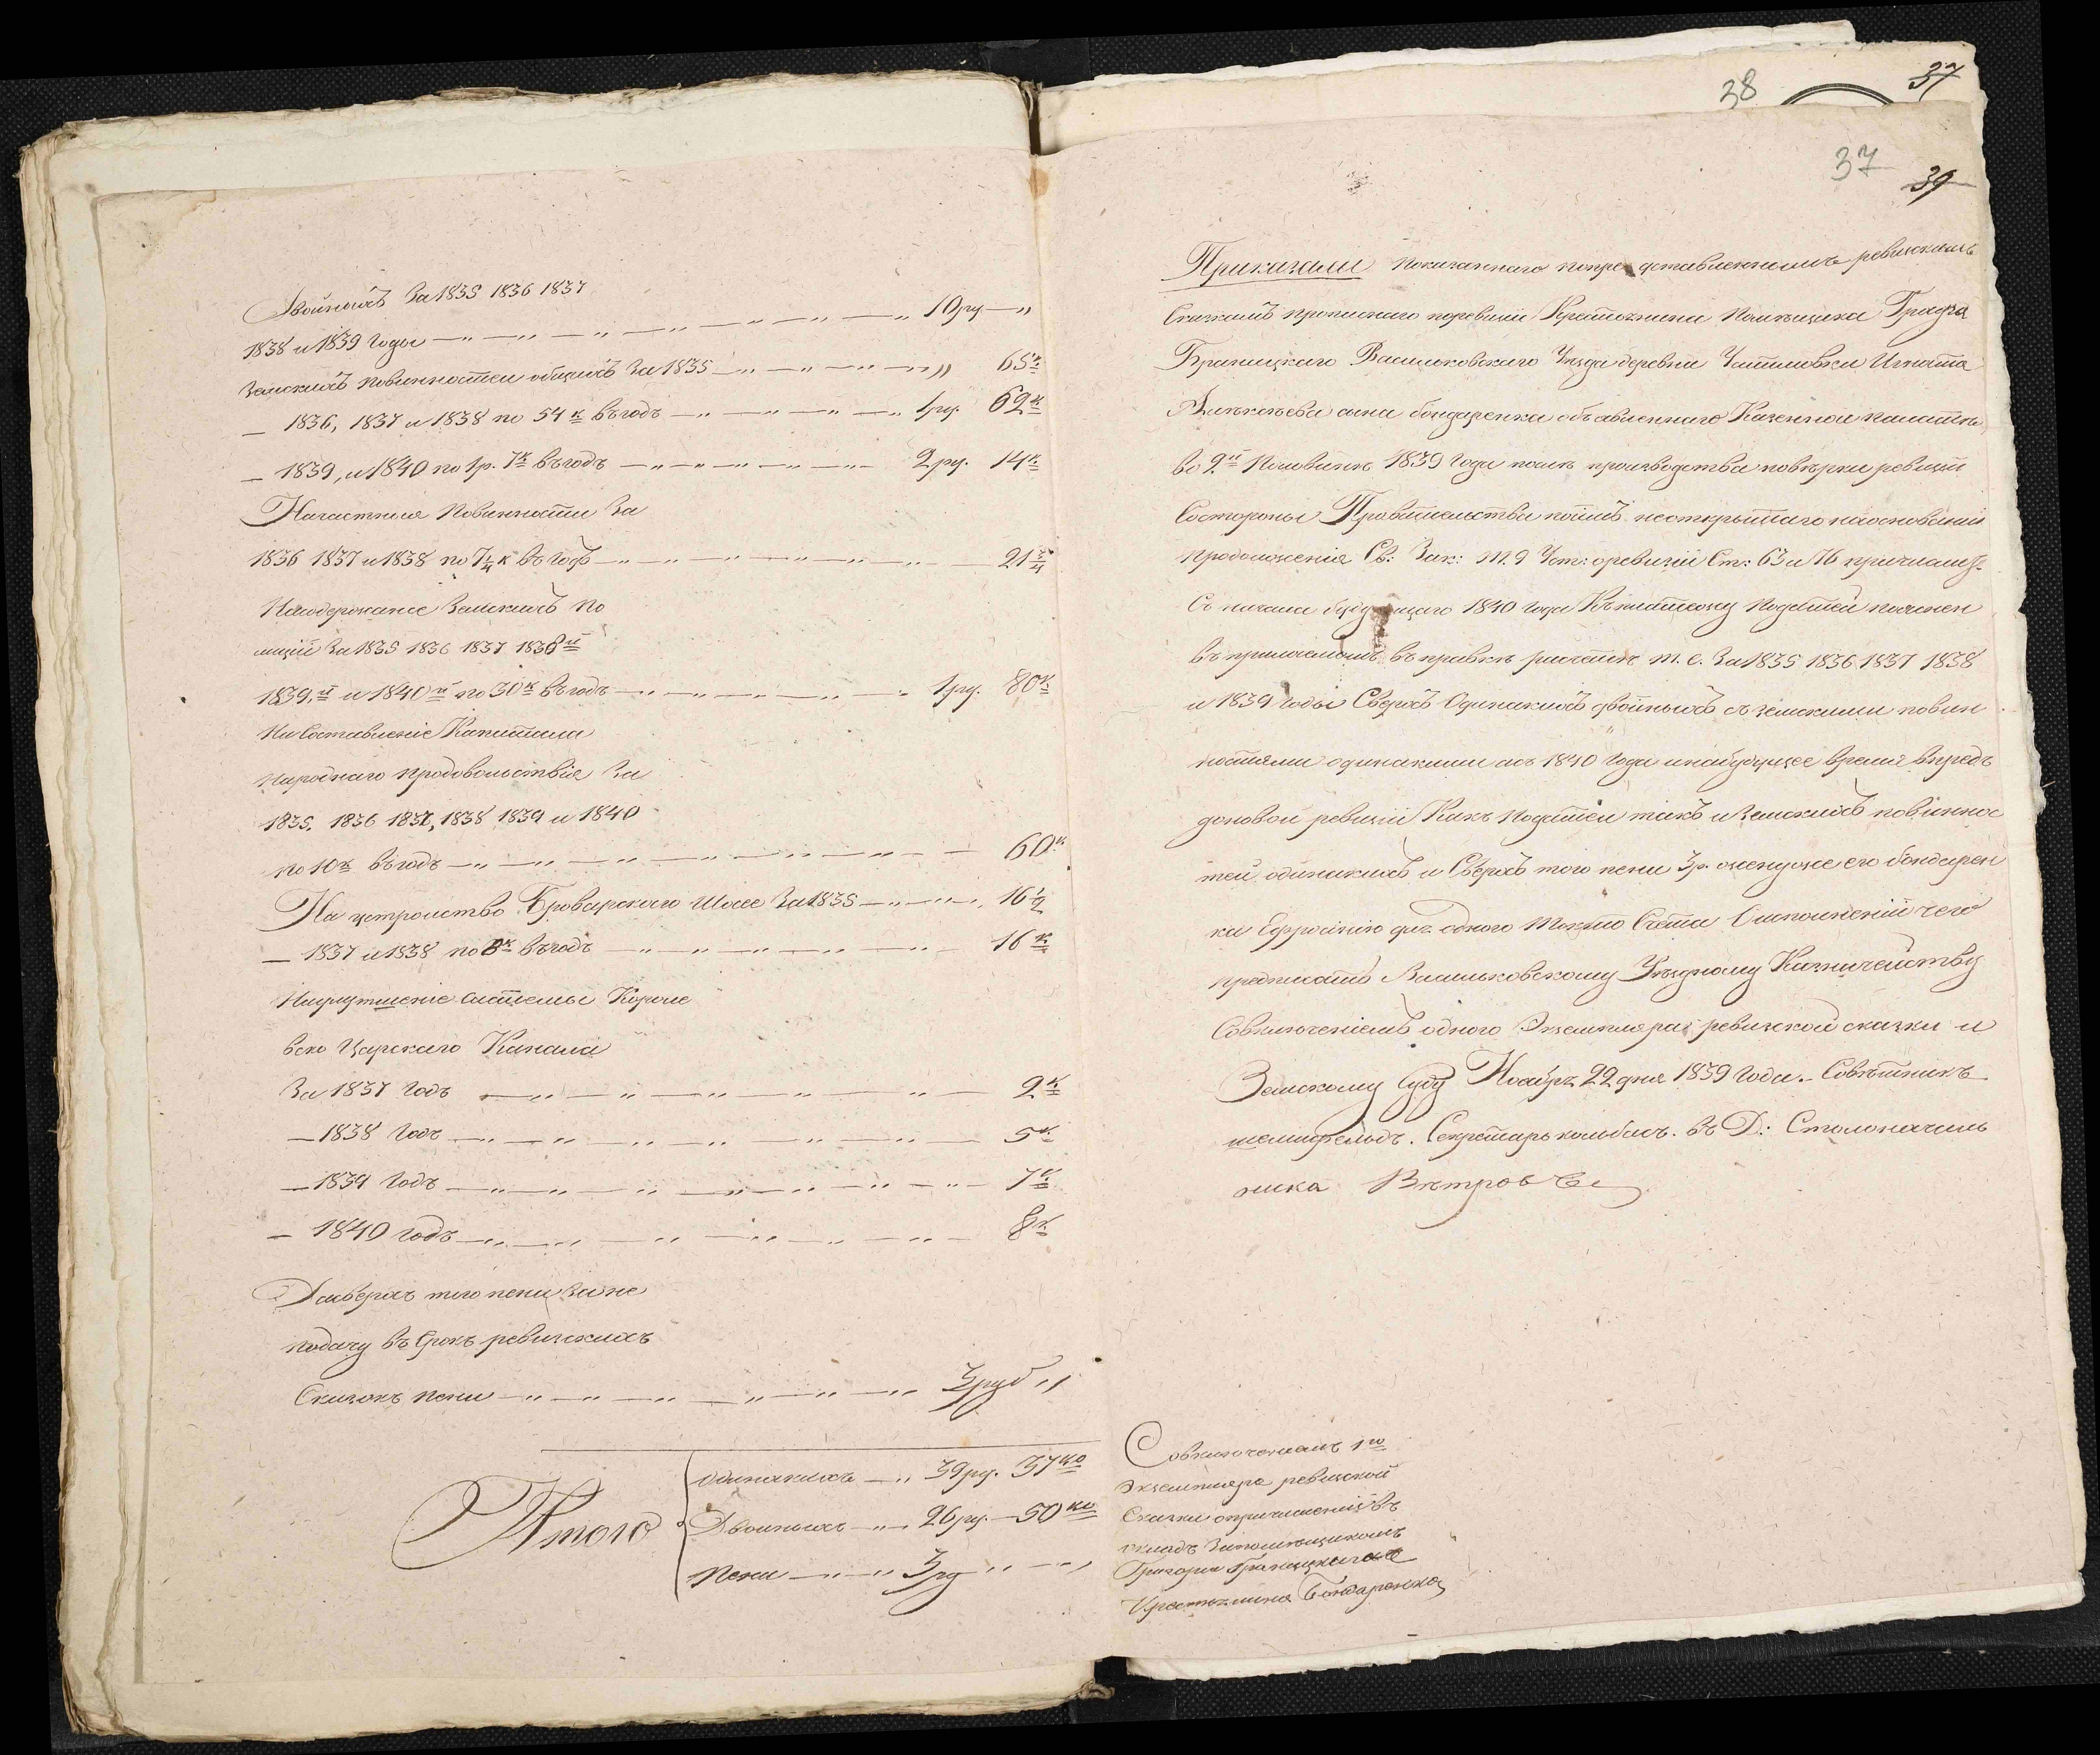 Двойныхъ За 1835 1836 1837
1838 и 1839 годы — „ — „ — „ — „ — „ — „ 10 ру — „
Земскихъ повинностей общихъ За 1835 — „ — „ — „ — „ „ 65 к
— 1836, 1837 и 1838 по 54 к въ годъ — „ — „ — „ — „ 1 ру. 62 к
— 1839, и 1840 по 1 р. 7 к въ годъ — „ — „ — „ — „ — 2 ру. 14 к
На частные Повинности За
1836 1837 и 1838 по 7 1/4 к въ годъ — „ — „ — „ — „ — 21 3/4
На содержание Земскихъ По
лицій За 1835 1836 1837 1838 й
1839, й и 1840 й по 30 к въ годъ — „ — „ — „ — „ 1 ру. 80 к.
На Составленіе Капитала
народнаго продовольствія За
1835, 1836 1837, 1838 1839 и 1840
по 10 к въ годъ — „ — „ — „ — „ — „ — „ — 60 к
На устройство Броварскаго Шоссе За 1835 — „ — „ 16 1/2
— 1837 и 1838 по 8 к въ годъ — „ — „ — „ — „ — 16 к
На улутшеніе системы Короле
вско Царскаго Канала
За 1837 годъ — „ — „ — „ — „ — „ — 2 к
— 1838 годъ — „ — „ — „ — „ — „ — „ — 5 к
— 1839 годъ — „ — „ — „ — „ — „ — „ — 7 к
— 1840 годъ — „ — „ — „ — „ — „ — „ — 8 к
Да сверхъ того пени за не
подачу въ Срокъ ревизскихъ
Сказокъ пени — „ — „ — „ — „ — „ — „ 3 руб „
Итого
одинакихъ — „ 39 ру. 37 ко
Двойныхъ — „ — 26 ру. — 50 ко
пени — „ — „ 3 ру „ — „
38
37
37
39
Приказали Показаннаго попредставленнымъ ревизскимъ
Сказкамъ прописнаго поревизіи Крестьянина Помѣщика Графа
Браницкаго Васильковскаго Уезда деревни Игната
Алексѣева сына бондаренка объявленнаго Казенной палатѣ
во 2 й Половинѣ 1839 года послѣ производства повѣрки ревизіи
Состороны Правительства неоткрытаго наосновании
продолженія Св: Зак: т. 9 Уст: оревизіи Ст: 63 и 76 причислить
Съ начала будущаго 1840 года Къ платежу Податей
въ правкѣ расчетѣ т. е. За 1835 1836 1837 1838
и 1839 годы Сверхъ Одинакихъ двойныхъ съ земскими повин
ностями одинакими асъ 1840 года инабудущее время впредъ
доновой ревизіи Какъ Податей такъ и Земскихъ повиннос
тей одинакихъ и Сверхъ того пени 3 р. его бондарен
ка одного Счета О исполненіи чего
предписать Васильковскому Уѣздному Казначейству
Совключеніемъ одного Экземпляра ревизской сказки и
Земскому Суду Ноабря 22 дня 1839 года. Совѣтникъ
Секретарь въ Д: Столоначаль
ника Вѣтровъ
Совключениемъ 1 го
экземпляра ревизской
Сказки опричисленіи въ
окладъ Запомѣщикомъ
Графом Браницкимъ
Крестьянина Бондаренка